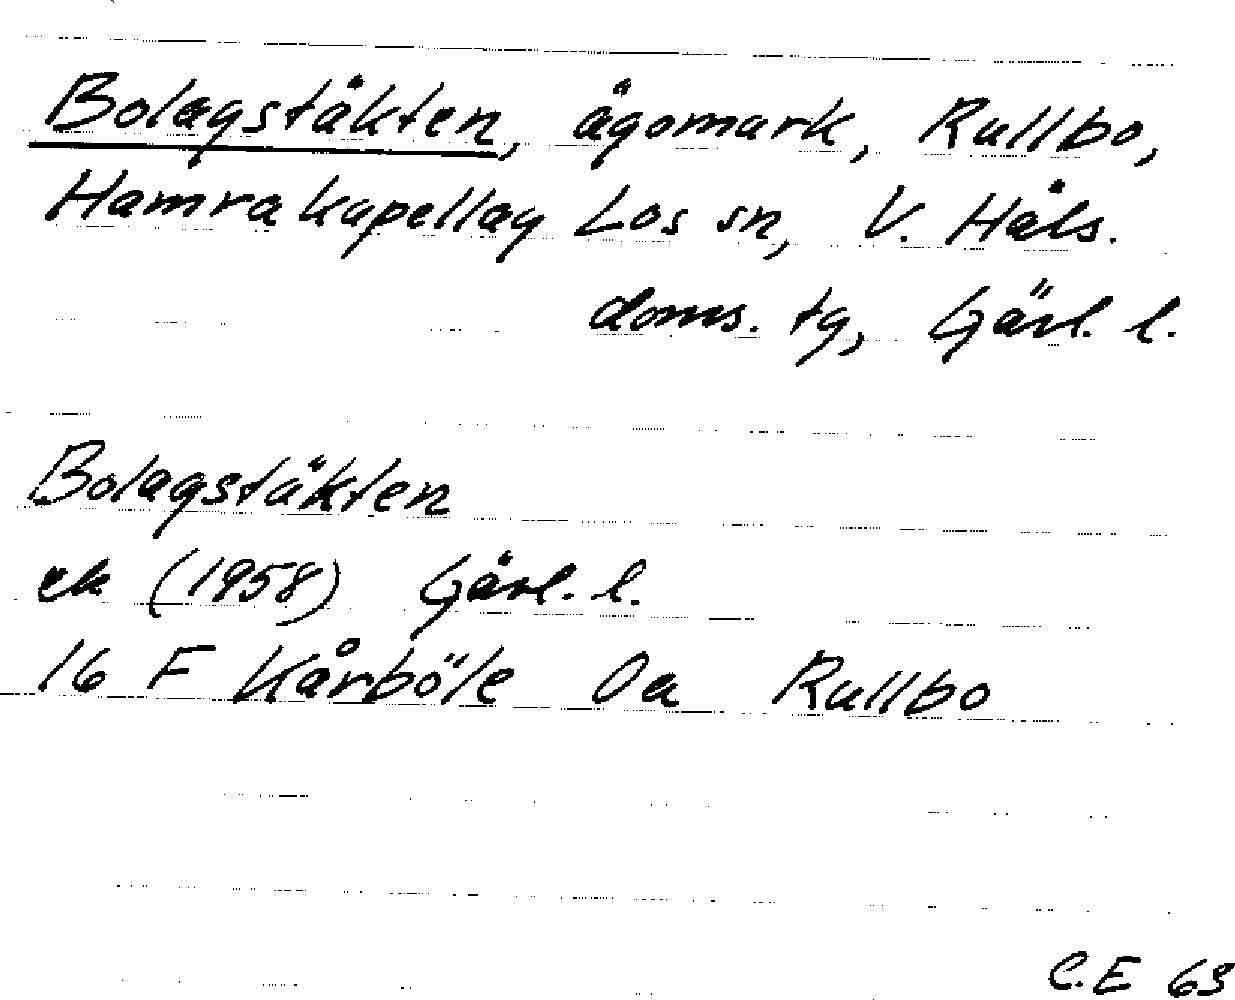 Bolagstäkten, ägomark, Rullbo,
Hamra kapellag Los sn, V. Häls.
doms. tg, Gävl. l.
Bolagstäkten
ek (1958) Gävl. l.
16 F Kårböle 0a Rullbo
C.E 63